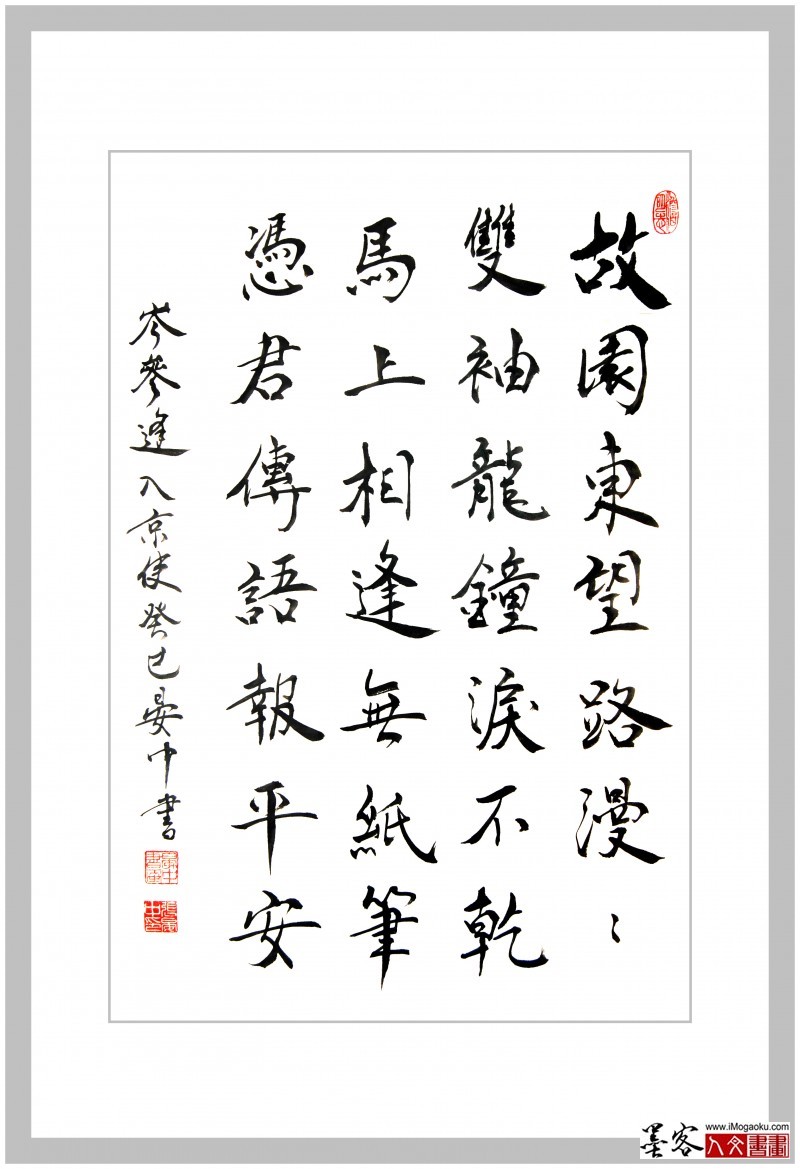 故園東望路漫〻
雙袖龍鐘淚不乾
馬上相逢無紙筆
憑君傳語報平安
岑參逢入京使癸巳晏中書
www.iMogaoku.com
墨客
人文書畫